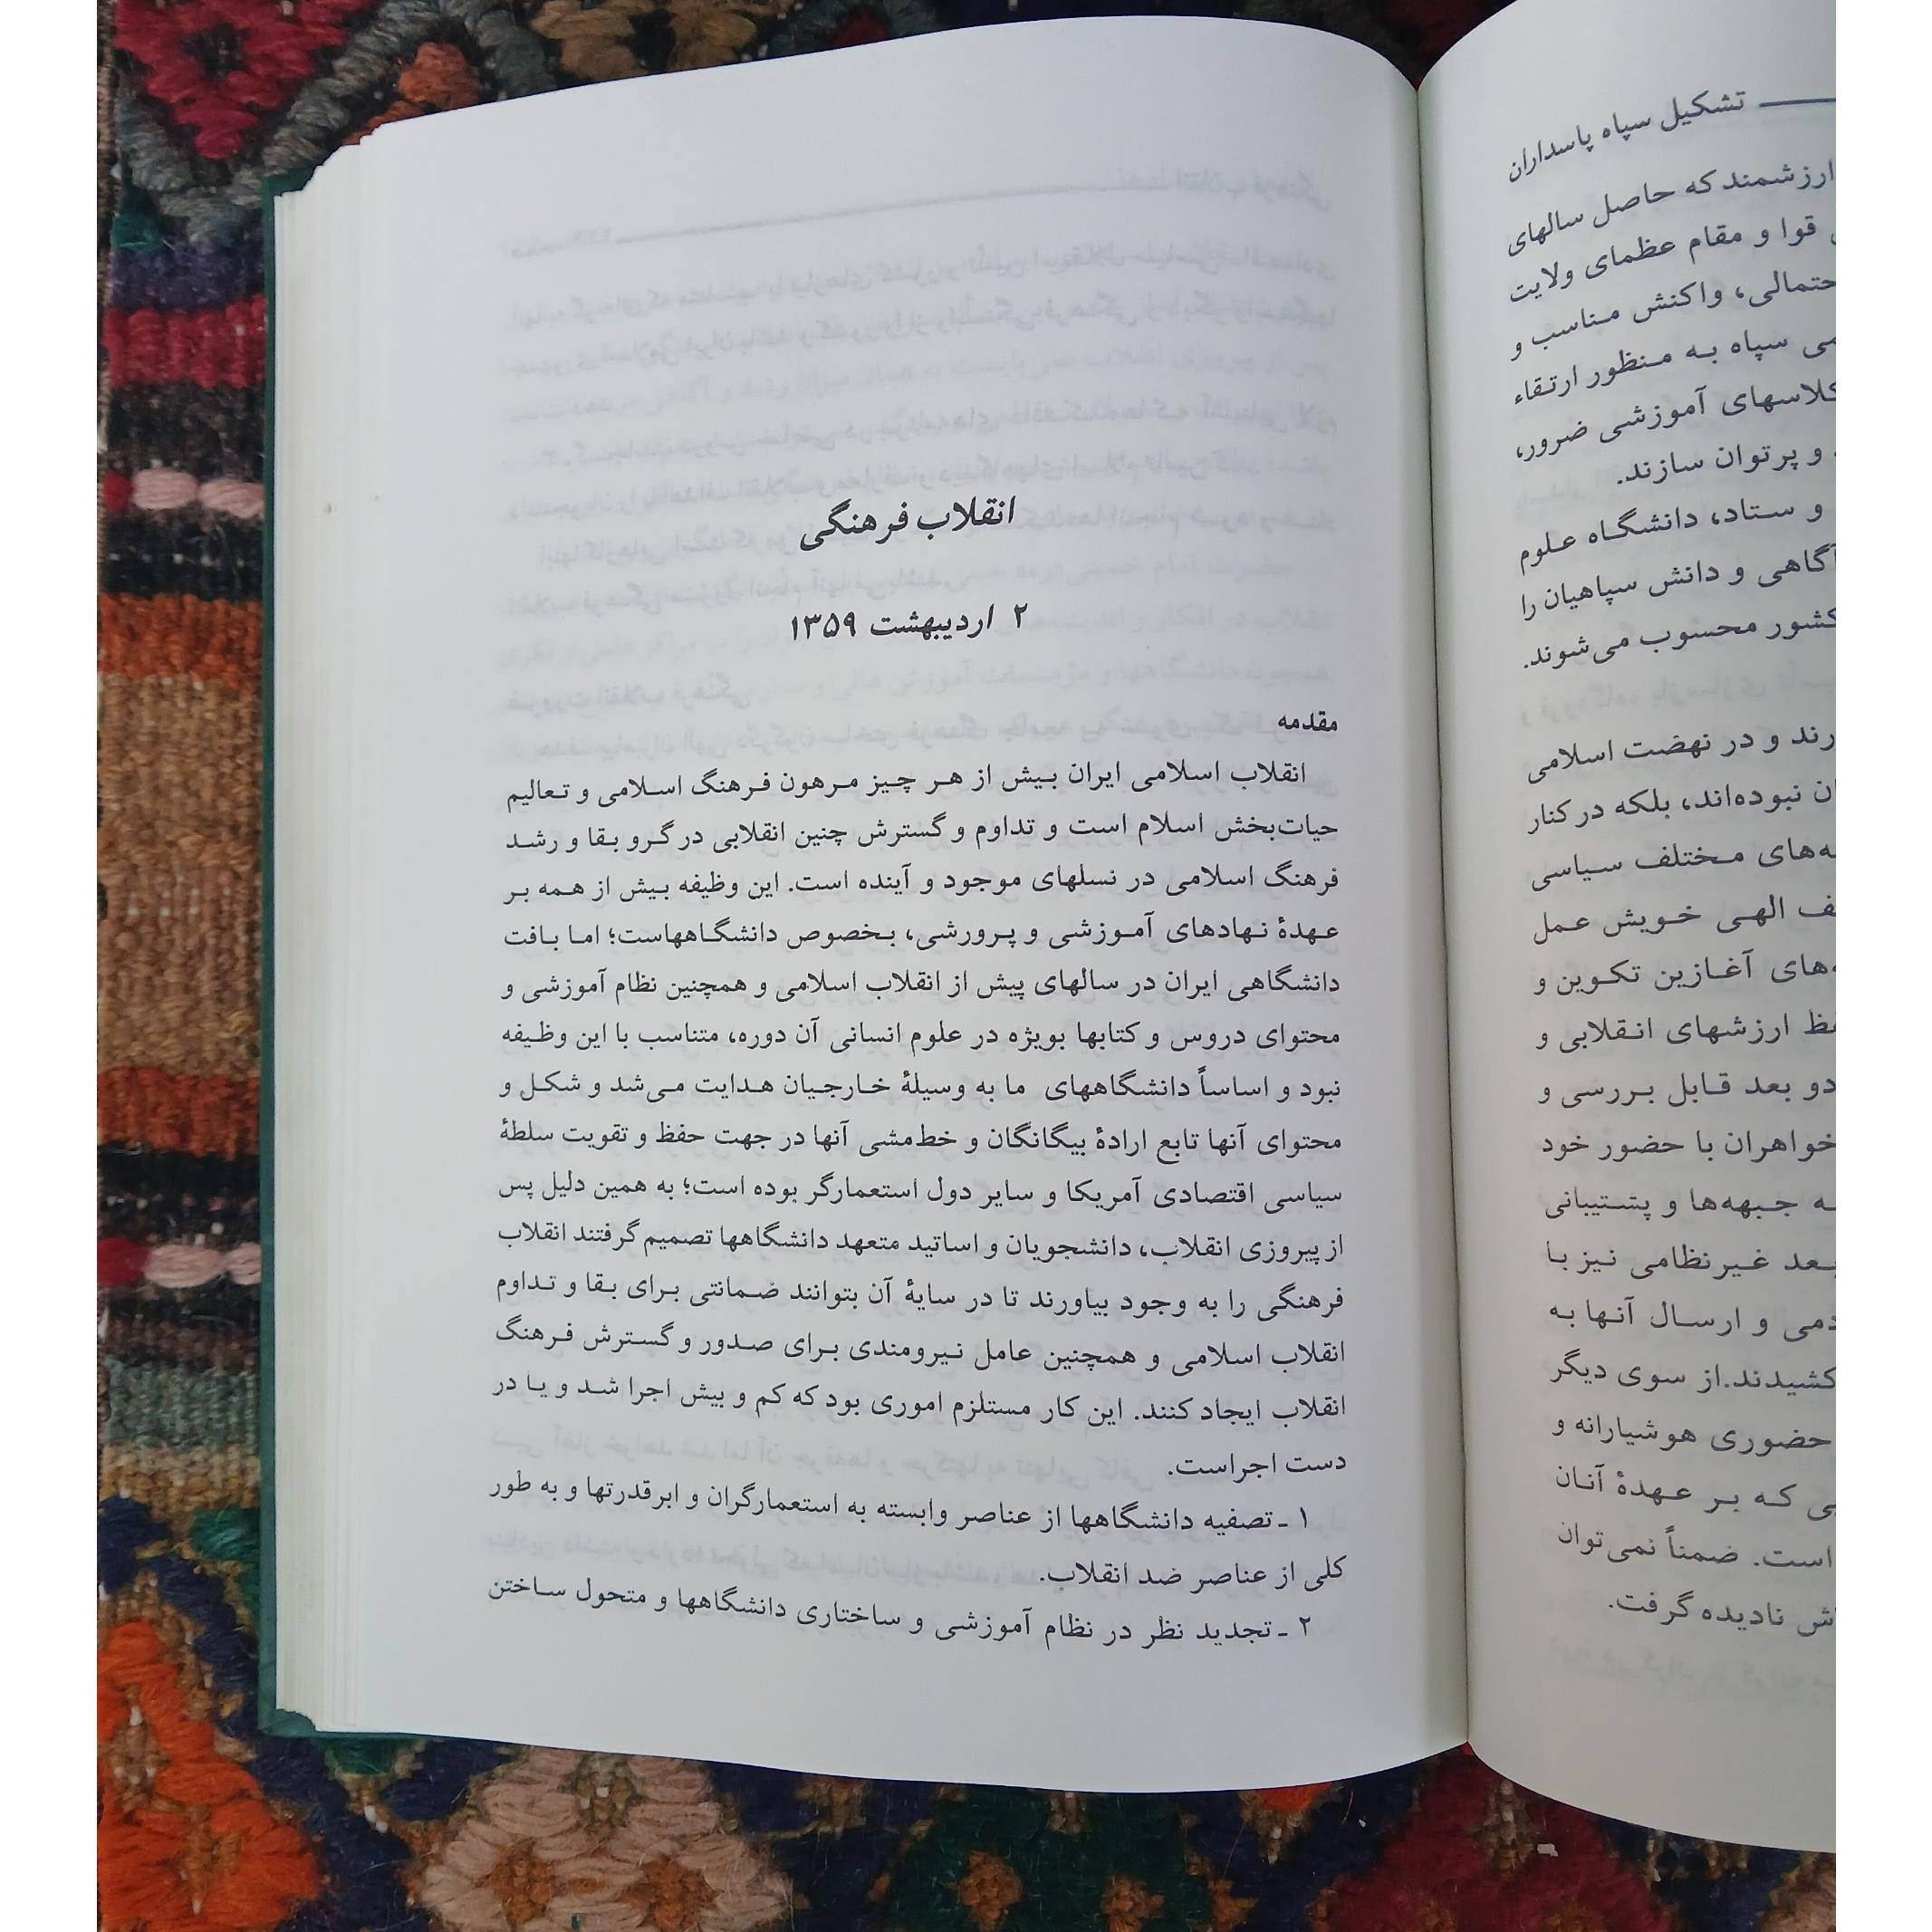 تشکیل سپاه پاسداران
ارزشمند که حاصل سالهای
قوا و مقام عظمای ولایت
حتمالی، واکنش مناسب و
می سپاه به منظور ارتقاء
کلاسهای آموزشی ضرور،
و پرتوان سازند.
و ستاد، دانشگاه علوم
آگاهی و دانش سپاهیان را
کشور محسوب می‌شوند.
رند و در نهضت اسلامی
ان نبوده‌اند، بلکه در کنار
ه‌های مختلف سیاسی
ف الهی خویش عمل
ه‌های آغازین تکوین و
فظ ارزشهای انقلابی و
دو بعد قابل بررسی و
خواهران با حضور خود
ه جبهه‌ها و پشتیبانی
بعد غیرنظامی نیز با
دمی و ارسال آنها به
کشیدند.از سوی دیگر
حضوری هوشیارانه و
ی که بر عهدهٔ آنان
است. ضمناً نمی‌توان
ش نادیده گرفت.
انقلاب فرهنگی
۲ اردیبهشت ۱۳۵۹
مقدمه
انقلاب اسلامی ایران بیش از هر چیز مرهون فرهنگ اسلامی و تعالیم
حیات‌بخش اسلام است و تداوم و گسترش چنین انقلابی در گرو بقا و رشد
فرهنگ اسلامی در نسلهای موجود و آینده است. این وظیفه بیش از همه بر
عهدهٔ نهادهای آموزشی و پرورشی، بخصوص دانشگاههاست؛ اما بافت
دانشگاهی ایران در سالهای پیش از انقلاب اسلامی و همچنین نظام آموزشی و
محتوای دروس و کتابها بویژه در علوم انسانی آن دوره، متناسب با این وظیفه
نبود و اساساً دانشگاههای ما به وسیلهٔ خارجیان هدایت می‌شد و شکل و
محتوای آنها تابع ارادهٔ بیگانگان و خط‌مشی آنها در جهت حفظ و تقویت سلطهٔ
سیاسی اقتصادی آمریکا و سایر دول استعمارگر بوده است؛ به همین دلیل پس
از پیروزی انقلاب، دانشجویان و اساتید متعهد دانشگاهها تصمیم گرفتند انقلاب
فرهنگی را به وجود بیاورند تا در سایهٔ آن بتوانند ضمانتی برای بقا و تداوم
انقلاب اسلامی و همچنین عامل نیرومندی برای صدور و گسترش فرهنگ
انقلاب ایجاد کنند. این کار مستلزم اموری بود که کم و بیش اجرا شد و یا در
دست اجراست.
۱ ـ تصفیه دانشگاهها از عناصر وابسته به استعمارگران و ابرقدرتها و به طور
کلی از عناصر ضد انقلاب.
۲ ـ تجدید نظر در نظام آموزشی و ساختاری دانشگاهها و متحول ساختن